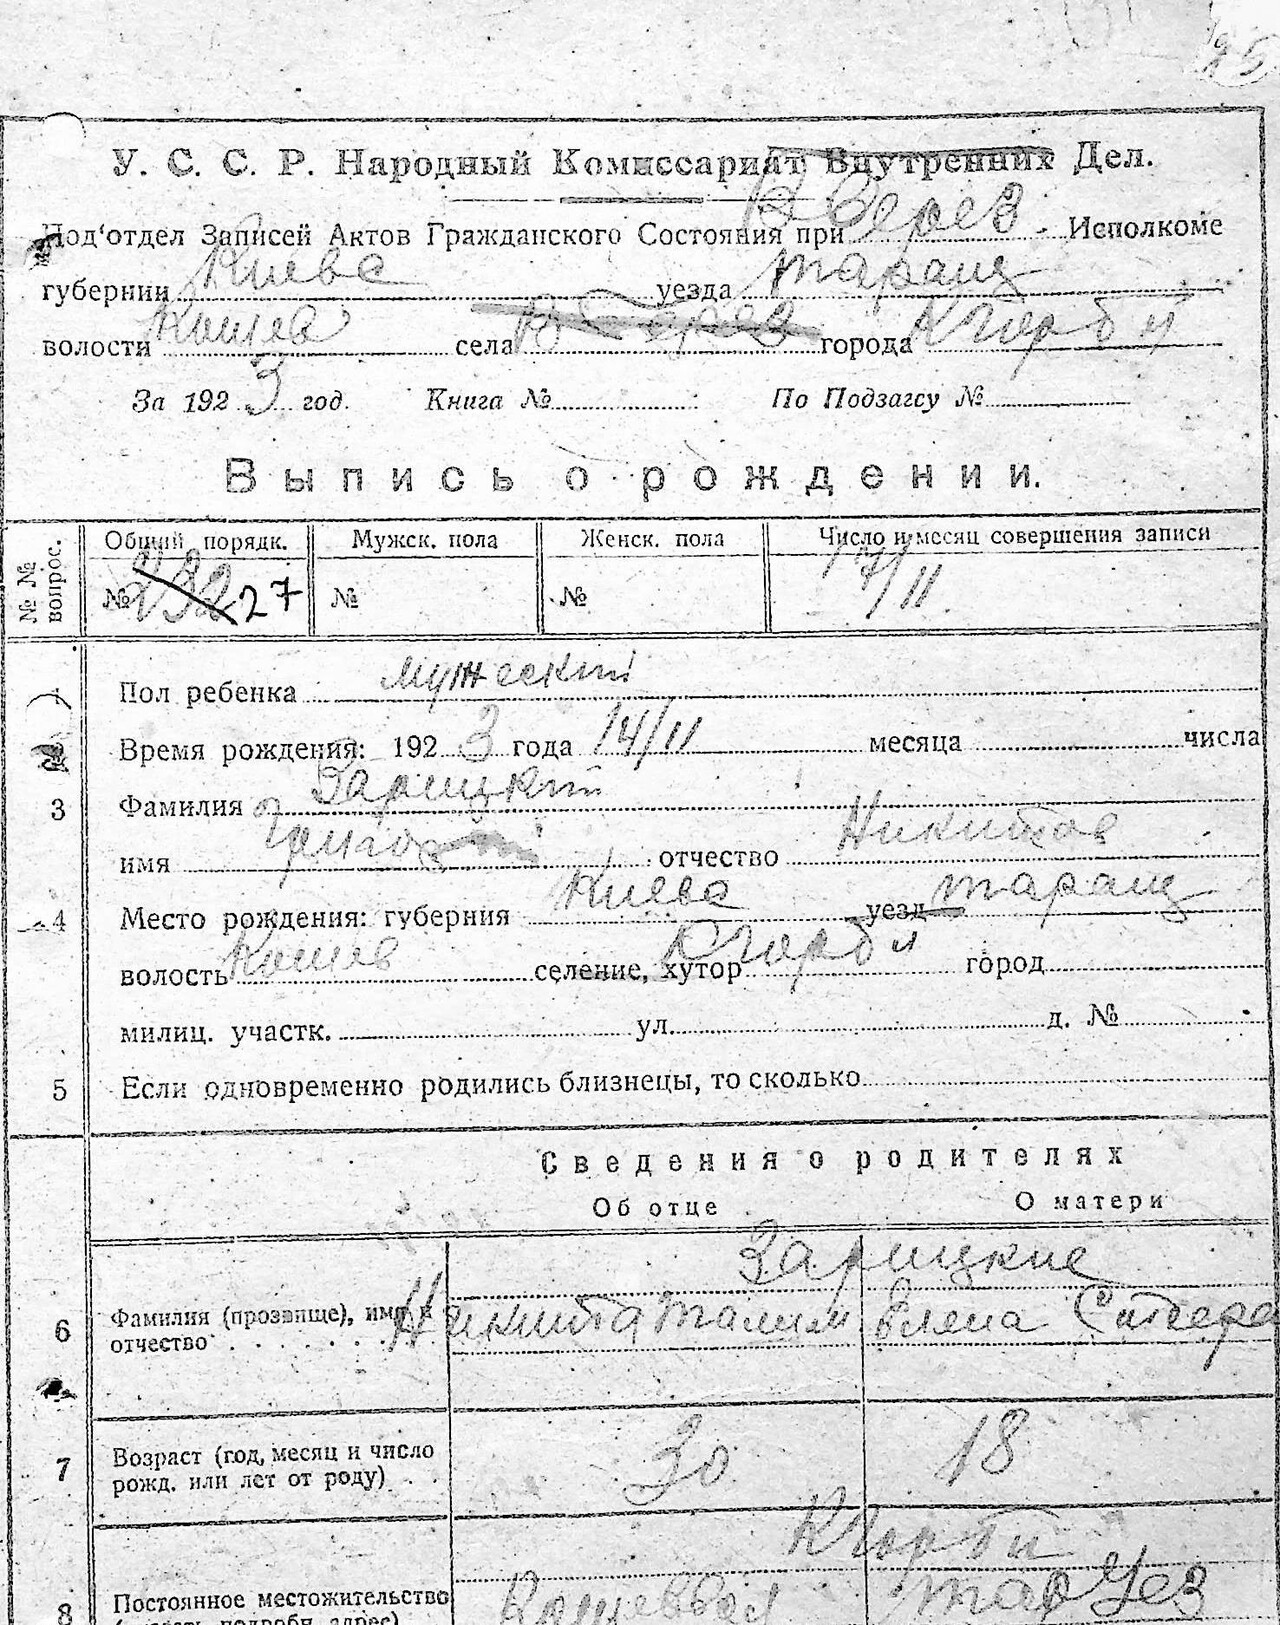 95
У. С. С. Р. Народный Комиссариат Внутренних Дел.
Под'отдел Записей Актов Гражданского Состояния при В Серев. Исполкоме
губернии Киевс уезда Таращ
волости Кошев села города К Горбы
За 1923 год. Книга № По Подзагсу №
Выпись о рождении.
№ № вопрос. Общий порядк. Мужск. пола Женск. пола Число и месяц совершения записи
№ 232 27 № № 17/II
1 Пол ребенка мужеский
2 Время рождения: 1923 года 14/II месяца числа
3 Фамилия Зарицкий
имя Григор отчество Никитов
4 Место рождения: губерния Киевс уезд Таращ
волость Кошев селение, хутор К Горбы город
милиц. участк. ул. д. №
5 Если одновременно родились близнецы, то сколько
Сведения о родителях
Об отце О матери
Зарицкие
6 Фамилия (прозвище), имя и отчество Никита Елена
7 Возраст (год, месяц и число рожд. или лет от роду) 30 18
К Горби
8 Постоянное местожительство Кошеввол Тар Уез